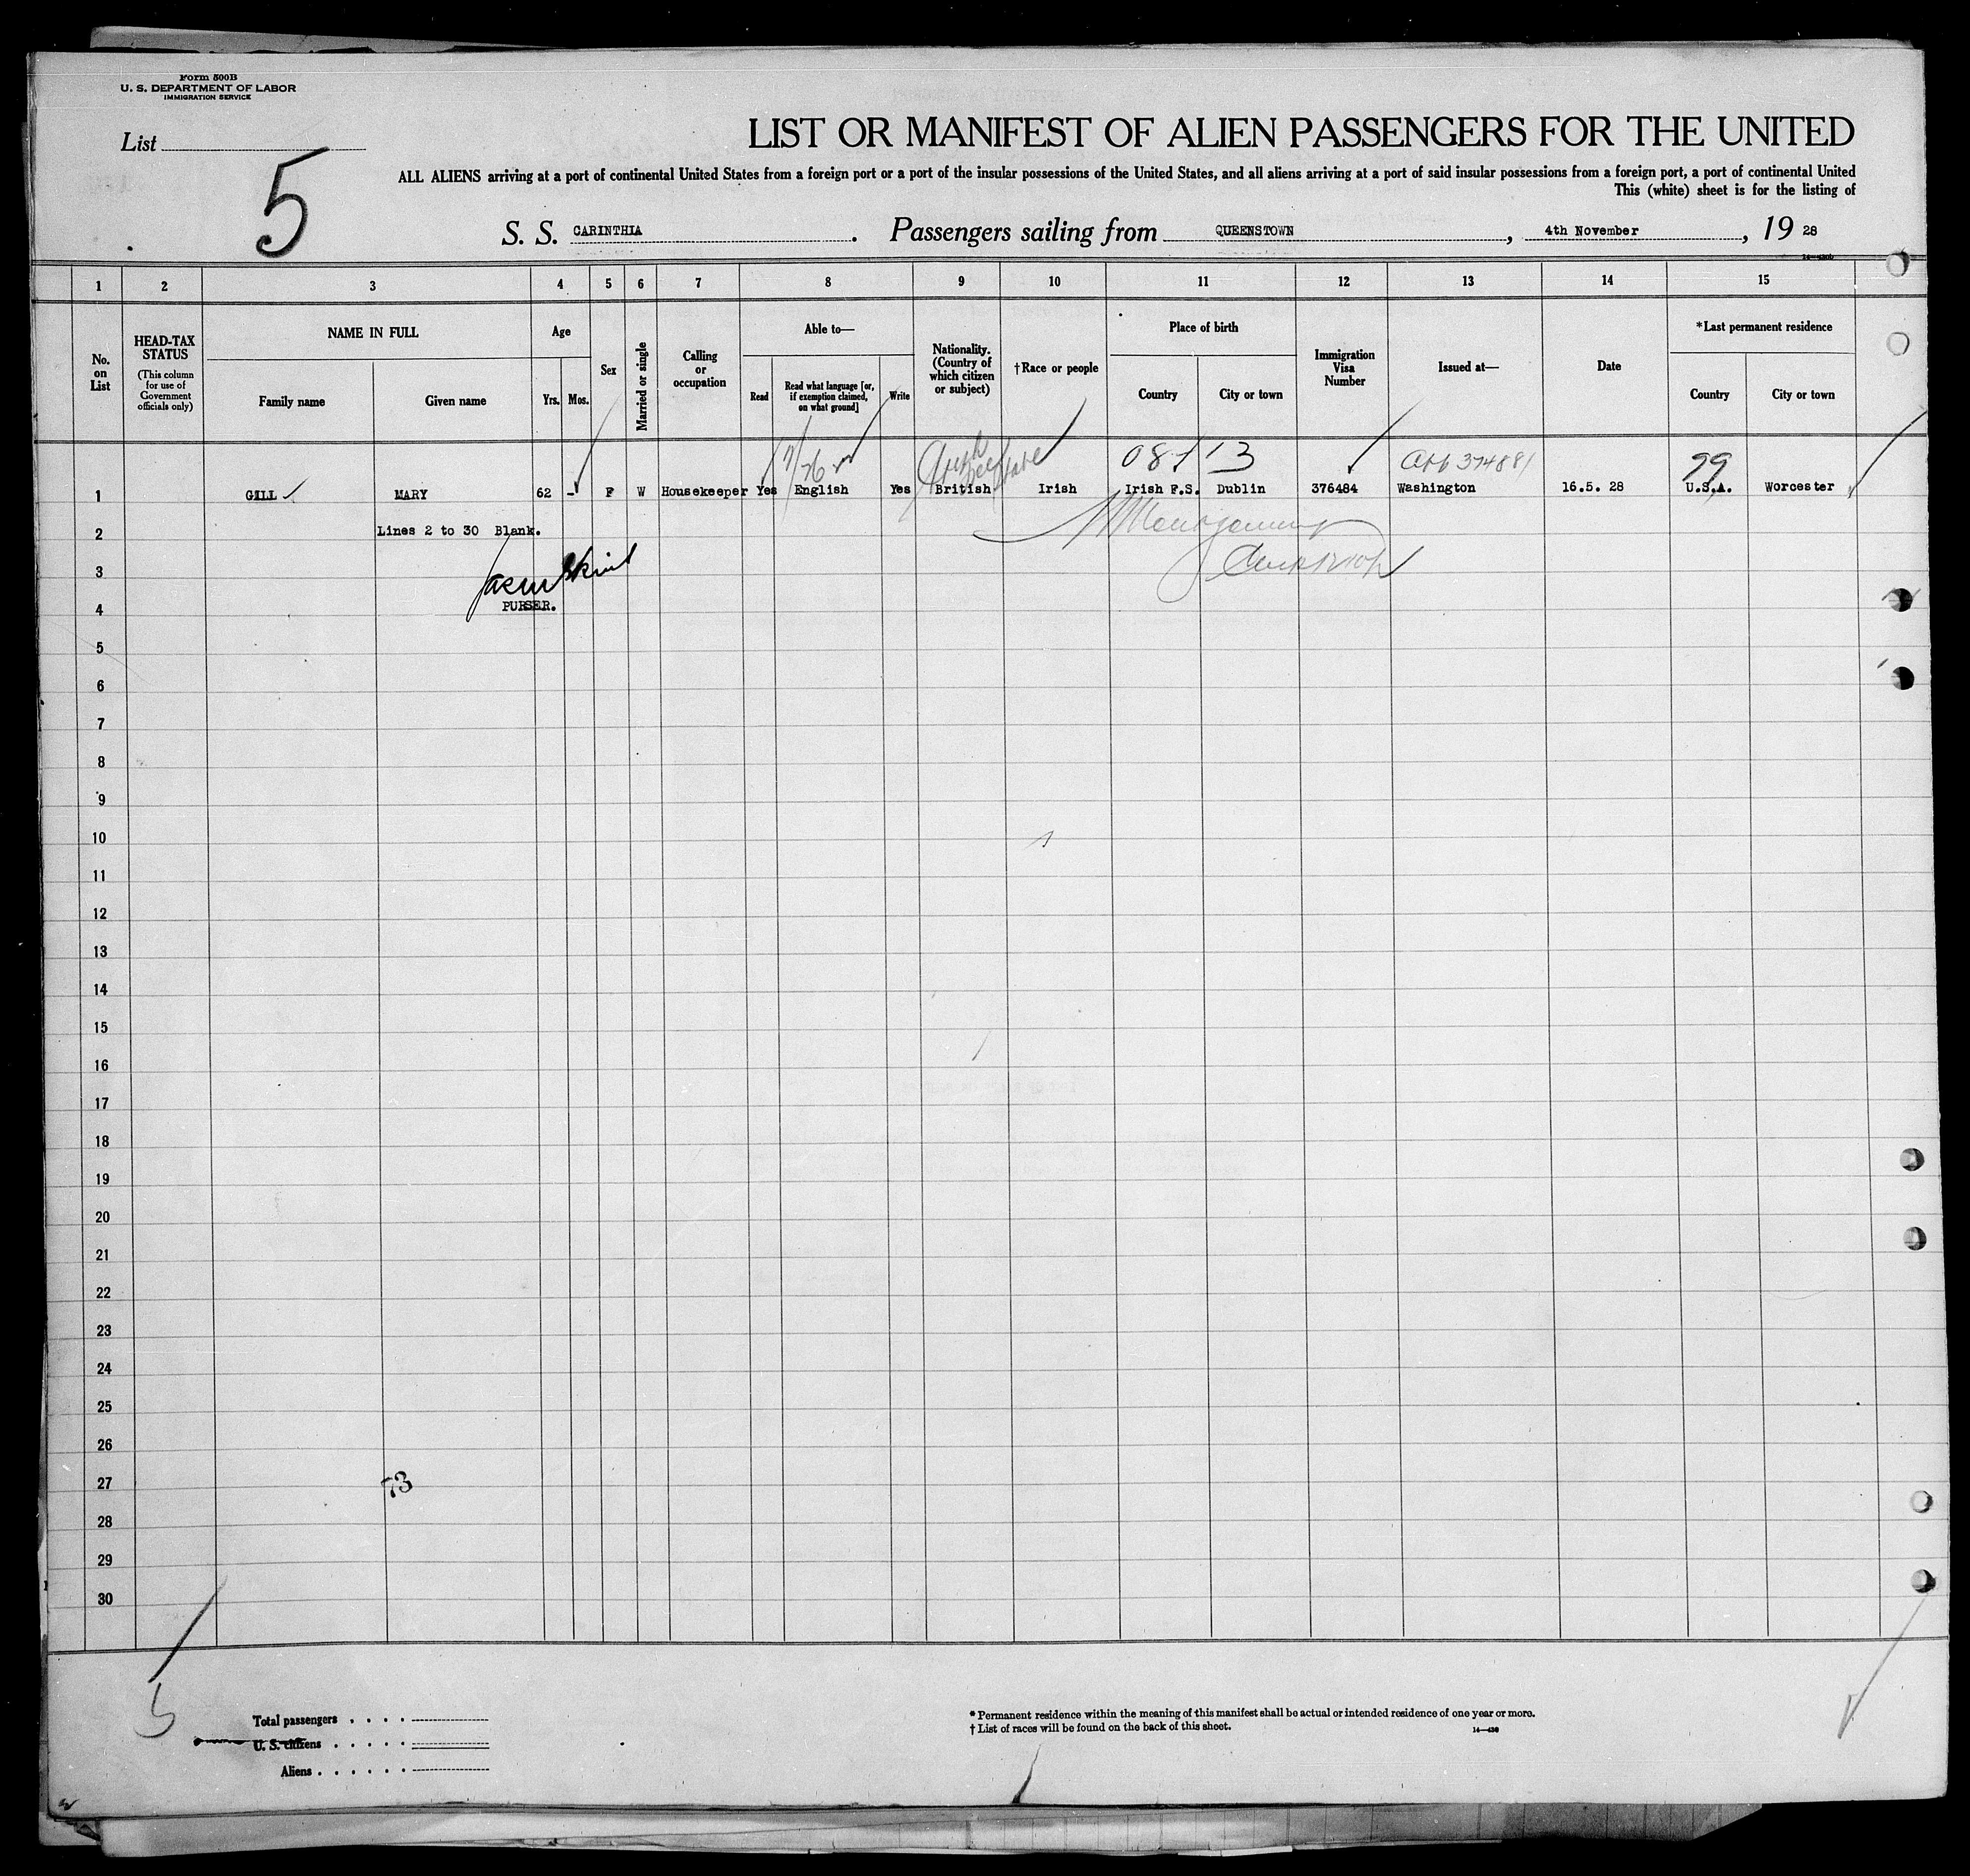 Form 500B
U. S. DEPARTMENT OF LABOR
IMMIGRATION SERVICE
List
5
LIST OR MANIFEST OF ALIEN PASSENGERS FOR THE UNITED
ALL ALIENS arriving at a port of continental United States from a foreign port or a port of the insular possessions of the United States, and all aliens arriving at a port of said insular possessions from a foreign port, a port of continental United
This (white) sheet is for the listing of
S. S. CARINTHIA . Passengers sailing from QUEENSTOWN , 4th November , 19 28
1 2 3 4 5 6 7 8 9 10 11 12 13 14 15
No. on List
HEAD-TAX STATUS
(This column for use of Government officials only)
NAME IN FULL
Family name
Given name
Age
Yrs. Mos.
Sex
Married or single
Calling or occupation
Able to—
Read
Read what language [or, if exemption claimed, on what ground]
Write
Nationality. (Country of which citizen or subject)
†Race or people
Place of birth
Country
City or town
Immigration Visa Number
Issued at—
Date
*Last permanent residence
Country
City or town
081 13 374881 99
1 GILL MARY 62 - F W Housekeeper Yes English Yes British Irish Irish F.S. Dublin 376484 Washington 16.5. 28 U.S.A. Worcester
2 Lines 2 to 30 Blank.
3
4 PURSER.
5
6
7
8
9
10
11
12
13
14
15
16
17
18
19
20
21
22
23
24
25
26
27 73
28
29
30
5
Total passengers
U. S. citizens
Aliens
* Permanent residence within the meaning of this manifest shall be actual or intended residence of one year or more.
† List of races will be found on the back of this sheet.
14—430